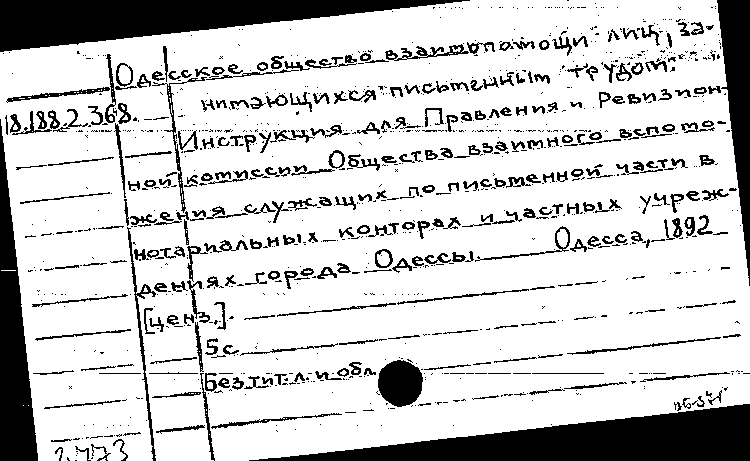 Одесское общество взаимопомощи лиц, за-
18.188.2.368.
нимающихся письменным трудом.
Инструкция для Правления и Ревизион-
ной комиссии Общества взаимного вспомо-
жения служащих по письменной части в
нотариальных конторах и частных учреж-
дениях города Одессы. Одесса, 1892
[ценз.].
5с.
Без тит. л. и обл.